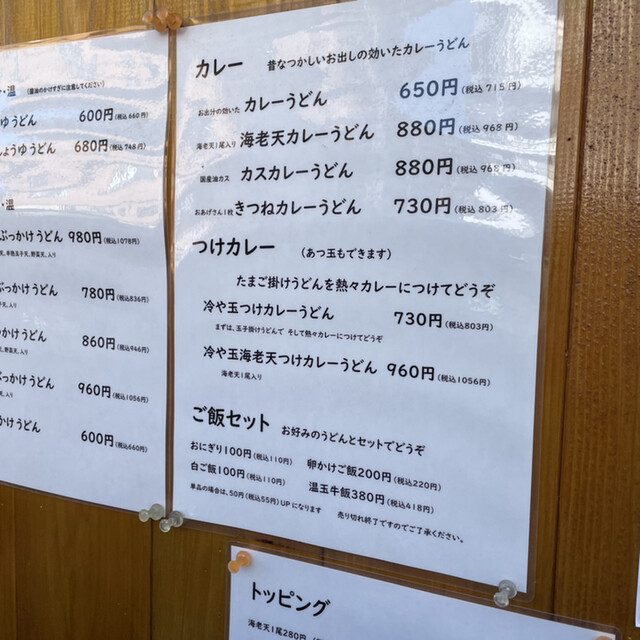 ・温 (醤油のかけすぎに注意してください)
ゆうどん 600円(税込 660円)
しょうゆうどん 680円(税込 748円)
・温
ぶっかけうどん 980円(税込1078円)
天、半熟玉子天、野菜天、入り
ぶっかけうどん 780円(税込836円)
かけうどん 860円(税込946円)
ぶっかけうどん 960円(税込1056円)
かけうどん 600円(税込660円)
カレー 昔なつかしいお出しの効いたカレーうどん
お出汁の効いた カレーうどん 650円(税込 715円)
海老天1尾入り 海老天カレーうどん 880円(税込 968円)
国産油カス カスカレーうどん 880円(税込 968円)
おあげさん1枚 きつねカレーうどん 730円(税込 803円)
つけカレー (あつ玉もできます)
たまご掛けうどんを熱々カレーにつけてどうぞ
冷や玉つけカレーうどん 730円(税込803円)
まずは、玉子掛けうどんで そして熱々カレーにつけてどうぞ
冷や玉海老天つけカレーうどん 960円(税込1056円)
海老天1尾入り
ご飯セット お好みのうどんとセットでどうぞ
おにぎり100円(税込110円) 卵かけご飯200円(税込220円)
白ご飯100円(税込110円) 温玉牛飯380円(税込418円)
単品の場合は、50円(税込55円)UPになります 売り切れ終了ですのでご了承ください。
トッピング
海老天1尾280円